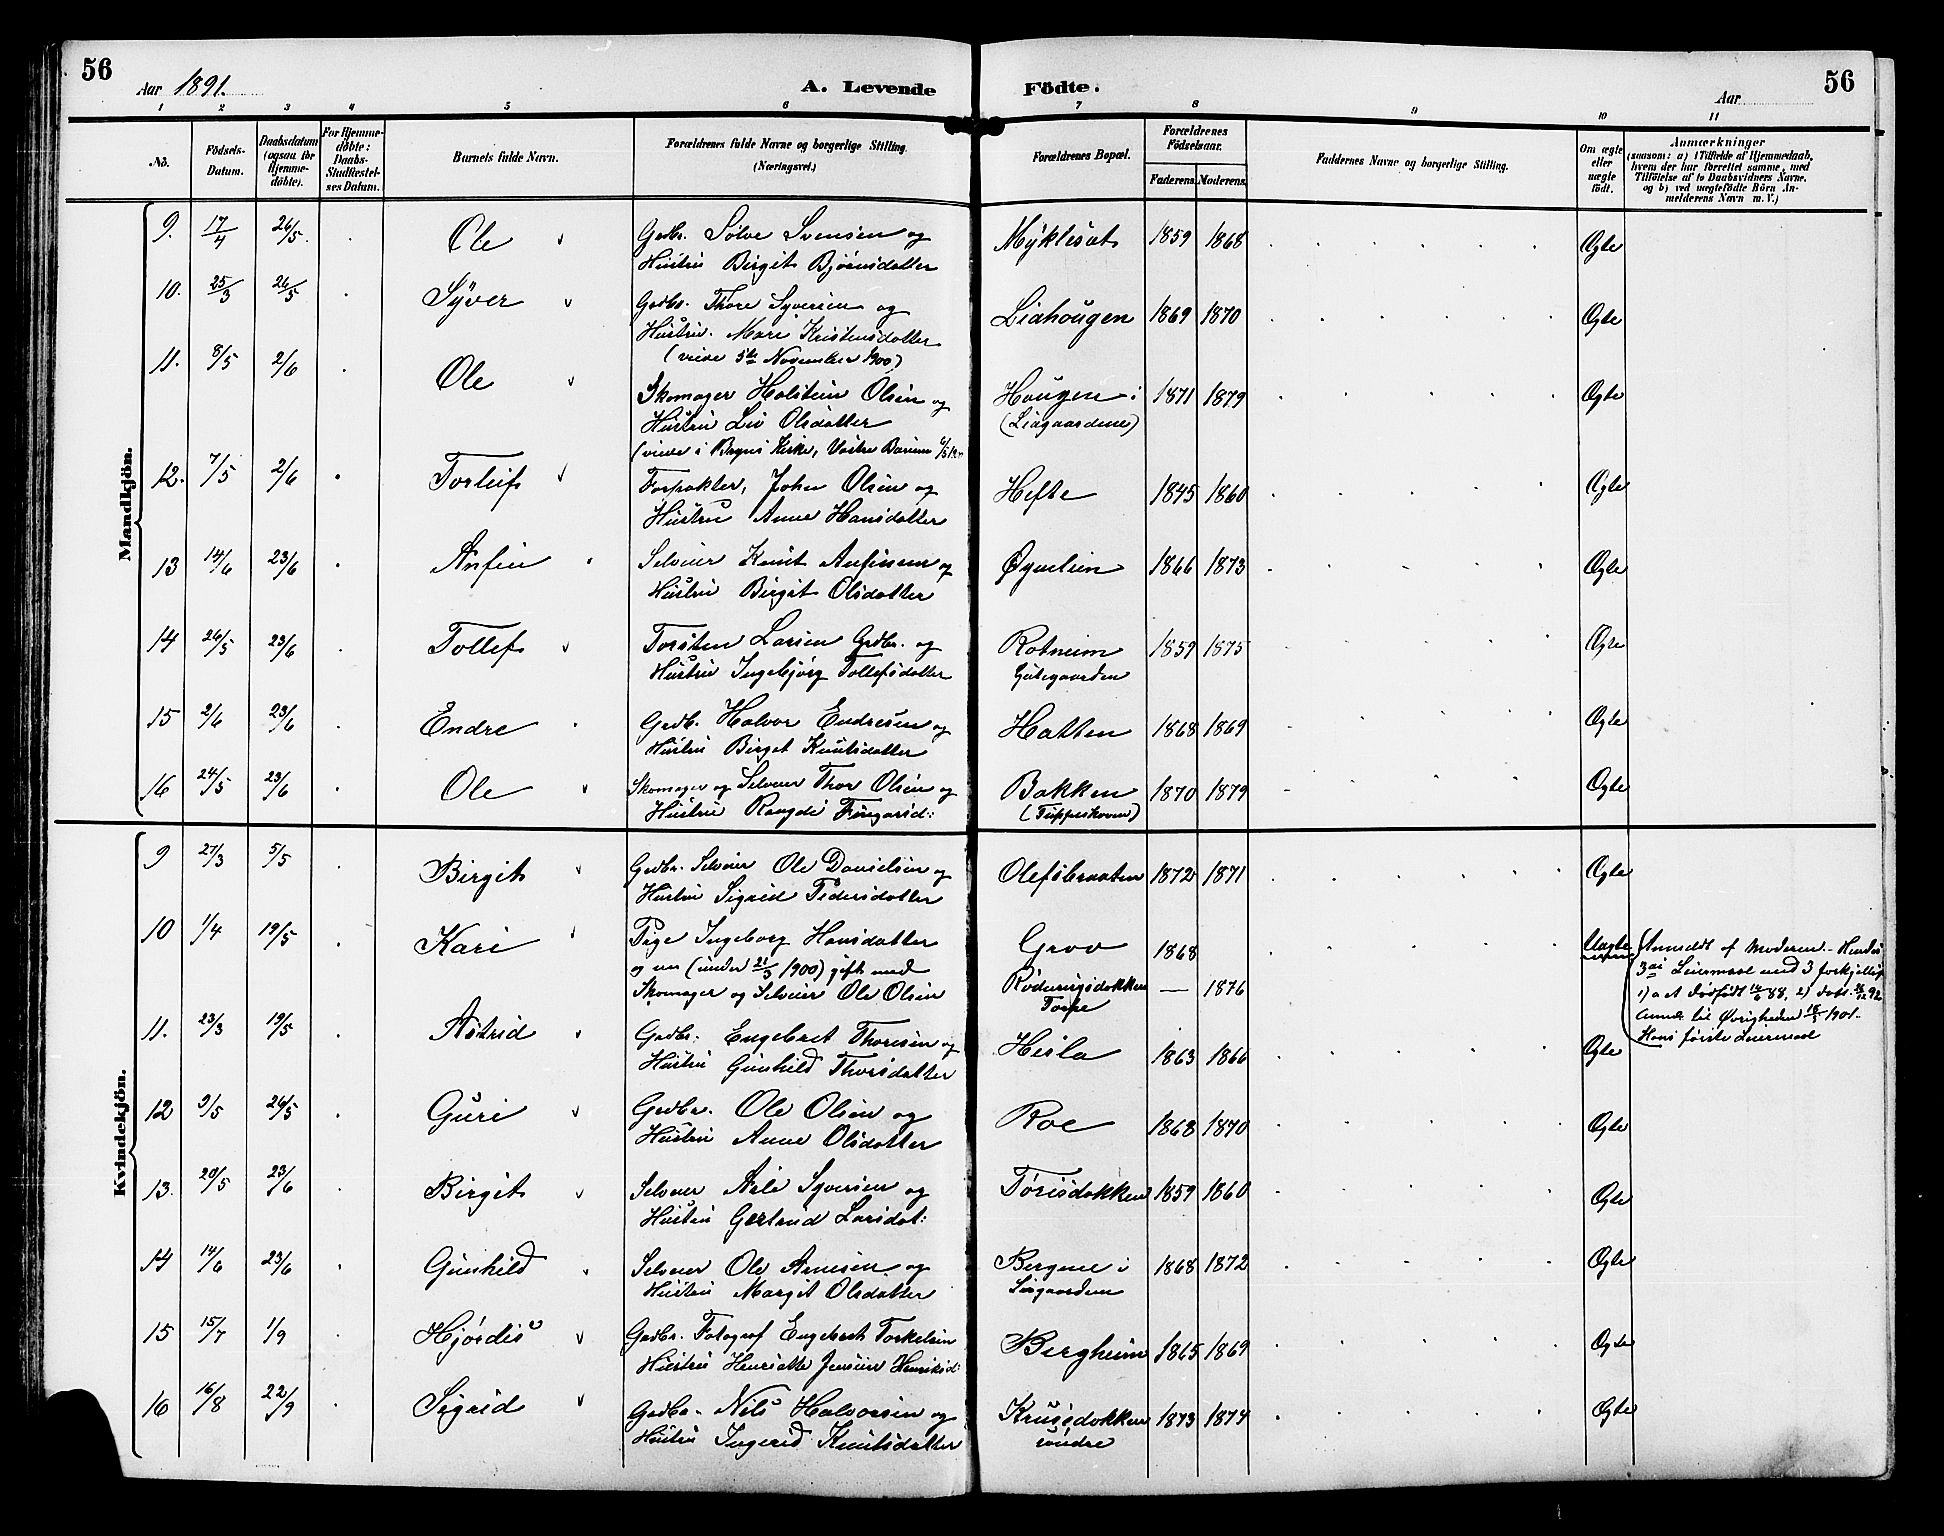 56
Aar 1891.
A. Levende Födte.
Aar
56
1 2 3 4 5 6 7 8 9 10 11
No.
Födsels-
Datum.
Daabsdatum
(ogsaa for
Hjemme-
döbte).
For Hjemme-
döbte:
Daabs-
Stadfæstel-
ses Datum.
Barnets fulde Navn.
Forældrenes fulde Navne og borgerlige Stilling.
(Næringsvei.)
Forældrenes Bopæl.
Forældrenes
Födselsaar.
Faderens. Moderens.
Faddernes Navne og borgerlige Stilling.
Om ægte
eller
uægte
födt.
Anmærkninger
(saasom: a) i Tilfælde af Hjemmedaab,
hvem der har forrettet samme, med
Tilföielse af to Daabsvidners Navne.
og b) ved uægtefödte Börn An-
melderens Navn m. V.)
Mandkjön.
9. 17/4 26/5. Ole Grdbr. Sølve Svensen og Myklesat 1859 1868 Ægte
Hustru Birgit Bjørnsdatter
10. 25/3 26/5 Syver Grdbr. Thore Syversen og Liahougen 1869 1870 Ægte
Hustru. Mari Kristensdatter
(viede 5te November 1900)
11. 8/5 2/6 Ole Skomager Holstein Olsen og Hougen i 1871 1879 Ægte
Hustru Liv Olsdatter (Liagaardene)
(viede i Bagns Kirke,
12. 7/5 2/6 Torleif Forpakter, John Olsen og Hefte 1845 1860 Ægte
Hustru Anne Hansdatter
13 14/6 23/6 Anfin Selveier Knut Anfinsen og Øynelien 1866 1873 Ægte
Hustru Birgit Olsdatter
14 26/5 23/6 Tollef Torsten Larsen Grdbr. og Rotneim 1859 1875 Ægte
Hustru Ingebjørg Tollefsdatter
15 2/6 23/6 Endre Grdb. Halvor Endresen og Hatten 1868 1869 Ægte
Hustru Birget Knutsdatter
16 24/5 23/6 Ole Skomager og Selveier Thor Olsen og Bakken 1870 1879 Ægte
Hustru Rangdi
Kvindekjön.
9 27/3 5/5 Birgit Grdbr. Selveier Ole Danielsen og Olefsbraaten 1872 1871 Ægte
Hustru Sigrid Pedersdatter
10 1/4 19/5 Kari Pige Ingeborg Hansdatter Grov 1868 Uægte Anmeldt af Moderen. - Hendes
og nu (under 21/5 1900) gift med 3die Leiermaal med 3 forskjellige
Skomager og Selveier Ole Olsen — 1876 1) a et dødfødt
Torpe Anm. til Øvrigheden 18/5 1901.
Hans første Leiermaal
11. 23/3 19/5 Astrid Grdbr. Engebret Thoresen og Heslo 1863 1866 Ægte
Hustru Gunhild Thorsdatter
12 9/5 26/5 Guri Grdbr. Ole Olsen og Roe 1868 1870 Ægte
Hustru Anne Olsdatter
13. 20/5 23/6 Birgit Selveier Asle Syversen og Torisdokken 1859 1860 Ægte
Hustru Gertrud Larsdat:
14 14/6 23/6 Gunhild Selveier Ole Arnesen og Bergene i 1868 1872 Ægte
Hustru Margit Olsdatter Sørgaarden
15 15/7 1/9 Hjørdis Grdbr. Fotograf Engebret Torkelsen Bergheim 1865 1869 Ægte
Hustru Henriette Jensine Henriksd:
16 16/8 22/9 Sigrid Grdbr. Nils Halvorsen og Krusedokken 1873 1874 Ægte
Hustru Ingerid Knutsdatter søndre